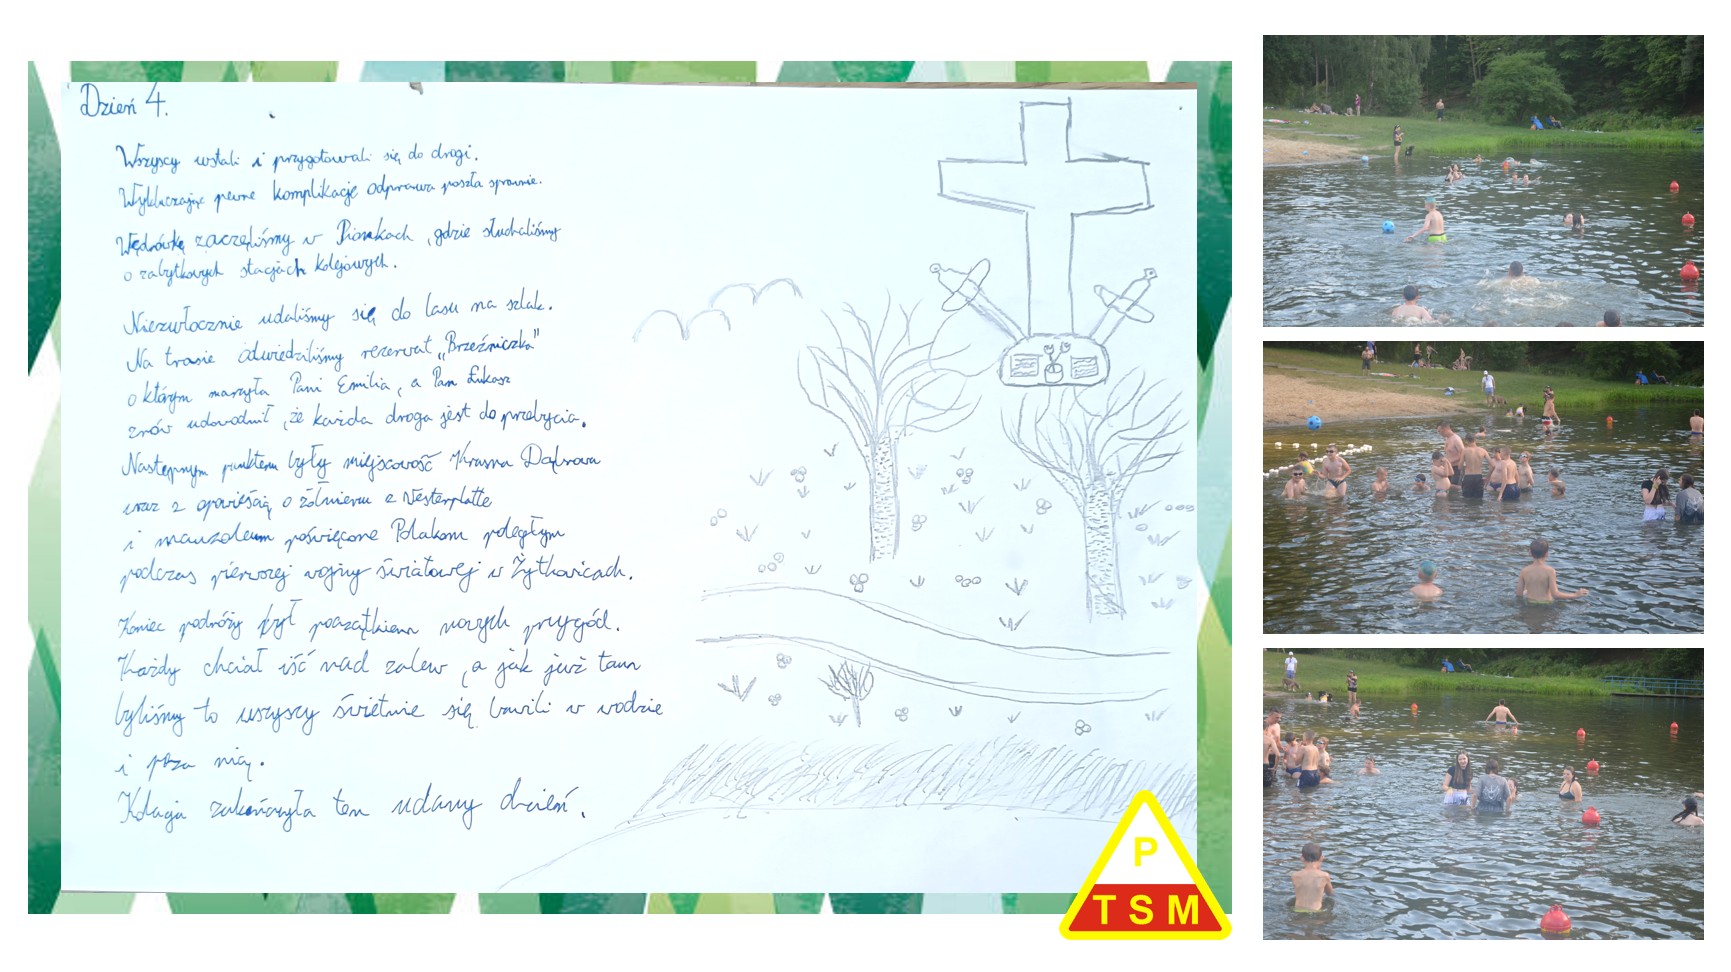 Dzień 4.
Wszyscy wstali i przygotowali się do drogi.
Wykluczając pewne komplikacje odprawa poszła sprawnie.
Wędrówkę zaczęliśmy w Pionkach, gdzie słuchaliśmy
o zabytkowych stacjach kolejowych.
Niezwłocznie udaliśmy się do lasu na szlak.
Na trasie odwiedziliśmy rezerwat „Brzeźniczka"
o którym marzyła Pani Emilia, a Pan Łukasz
znów udowodnił, że każda droga jest do przebycia.
Następnym punktem były miejscowość Krasna Dąbrowa
wraz z opowieścią o żołnierzu z Westerplatte
i mauzoleum poświęcone Polakom poległym
podczas pierwszej wojny światowej w Żytkowicach.
Koniec podróży był początkiem nowych przygód.
Każdy chciał iść nad zalew, a jak już tam
byliśmy to wszyscy świetnie się bawili w wodzie
i poza nią.
Kolacja zakończyła ten udany dzień.
P
TSM